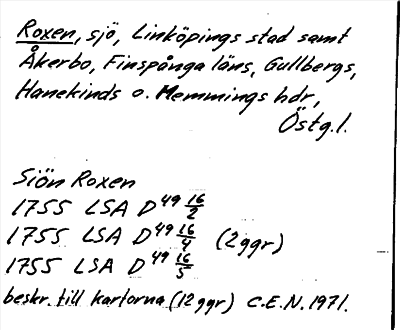 Roxen, sjö, Linköpings stad samt
Åkerbo, Finspånga läns, Gullbergs,
Hanekinds o. Memmings hdr,
Östg.l.
Siön Roxen
1755 LSA D⁴⁹ 16/2
1755 LSA D⁴⁹ 16/4 (2ggr)
1755 LSA D⁴⁹ 16/5
beskr. till kartorna (12ggr) C.E.N. 1971.